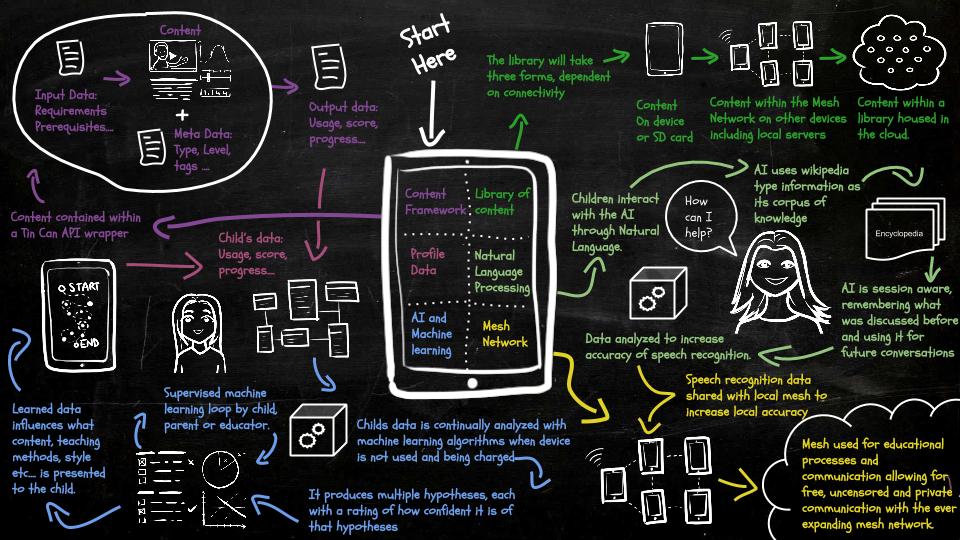 Start
Here
Content
Input Data:
Requirements
Prerequisites....
+
Meta Data:
Type, Level,
tags ....
Output data:
Usage, score,
progress....
Content contained within
a Tin Can API wrapper
Content
Framework
Library of
content
Profile
Data
Natural
Language
Processing
AI and
Machine
learning
Mesh
Network
The library will take
three forms, dependent
on connectivity
Content
On device
or SD card
Content within the Mesh
Network on other devices
including local servers
Content within a
library housed in
the cloud.
Children interact
with the AI
through Natural
Language.
How
can I
help?
AI uses wikipedia
type information as
its corpus of
knowledge
Encyclopedia
AI is session aware,
remembering what
was discussed before
and using it for
future conversations
Data analyzed to increase
accuracy of speech recognition.
Child's data:
Usage, score,
progress....
START
END
Learned data
influences what
content, teaching
methods, style
etc... is presented
to the child.
Supervised machine
learning loop by child,
parent or educator.
Childs data is continually analyzed with
machine learning algorithms when device
is not used and being charged
It produces multiple hypotheses, each
with a rating of how confident it is of
that hypotheses
Speech recognition data
shared with local mesh to
increase local accuracy
Mesh used for educational
processes and
communication allowing for
free, uncensored and private
communication with the ever
expanding mesh network.